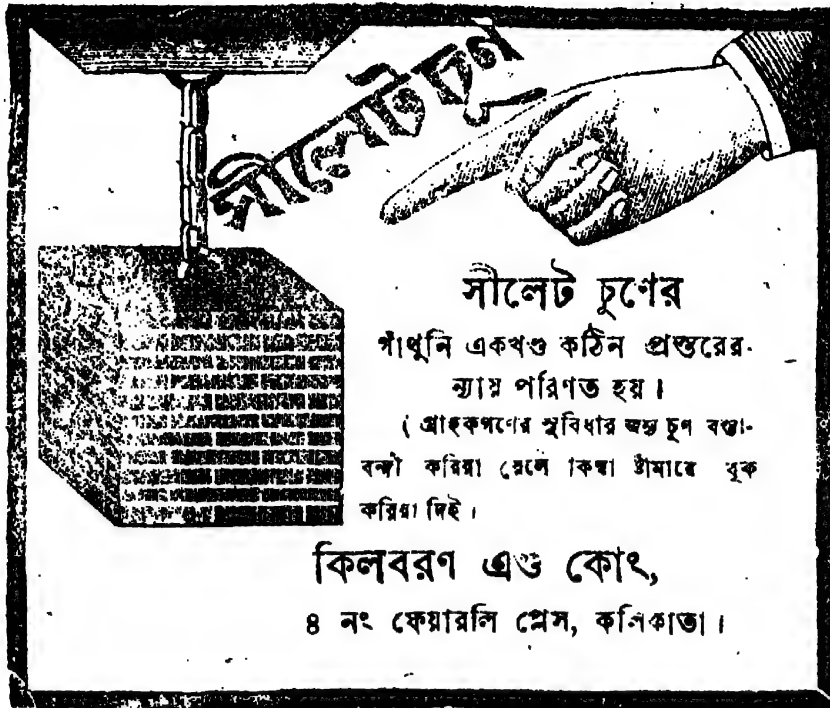 সীলেটচূণ
সীলেট চুণের
গাঁথুনি একখণ্ড কঠিন প্রস্তরের
ন্যায় পরিণত হয়।
( গ্রাহকগণের সুবিধার জন্য চুণ বস্তা-
বন্দী করিয়া রেলে কিম্বা ষ্টীমারে বুক
করিয়া দিই।
কিলবরণ এণ্ড কোং,
৪ নং ফেয়ারলি প্লেস, কলিকাতা।